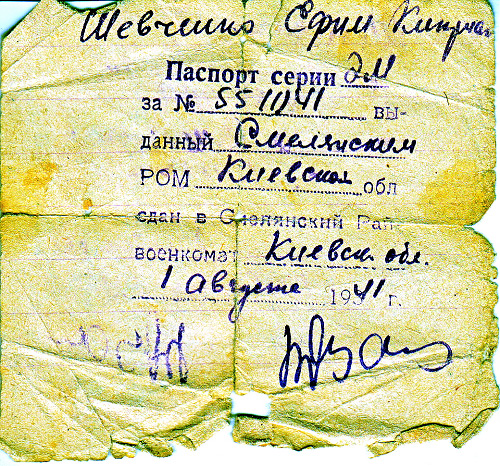 Шевченко Ефим
Паспорт серии ЭМ
за № 551041 вы-
данный Смелянским
РОМ Киевской обл
сдан в Смелянский Рай-
военкомат Киевск. обл.
1 августа 1941 г.